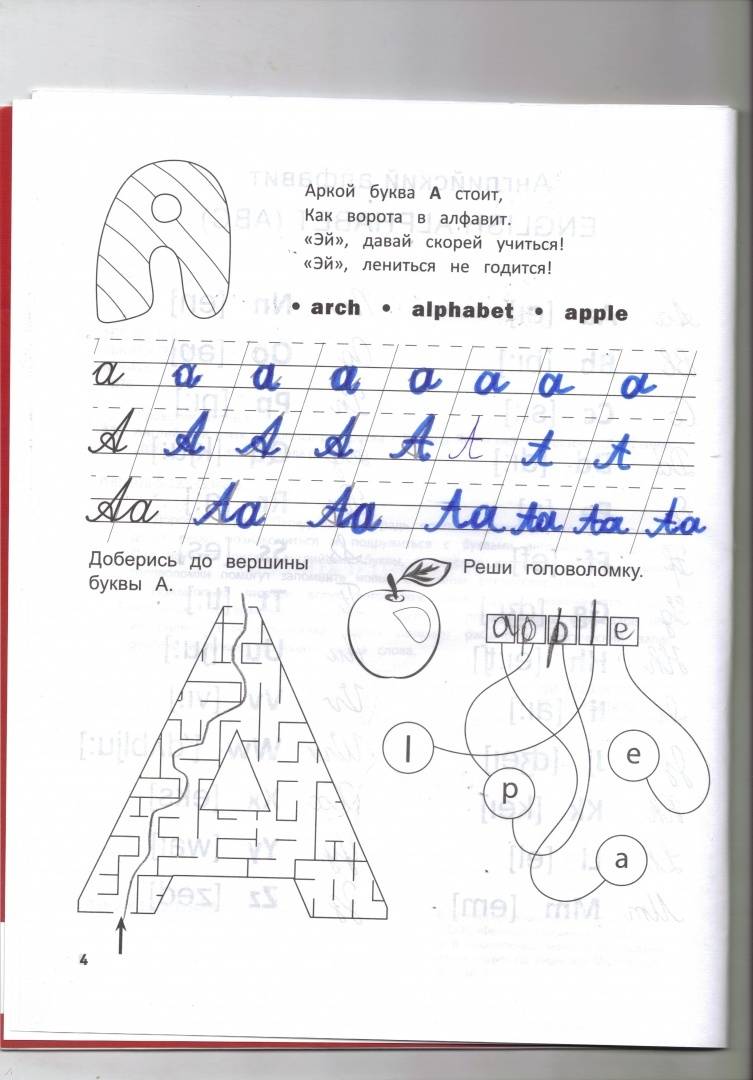 Аркой буква А стоит,
Как ворота в алфавит.
«Эй», давай скорей учиться!
«Эй», лениться не годится!
• arch • alphabet • apple
a a a a a a a a
A A A A A A A A
Aa Aa Aa Aa Aa Aa Aa
Доберись до вершины
буквы А.
Реши головоломку.
apple
l
e
p
a
4